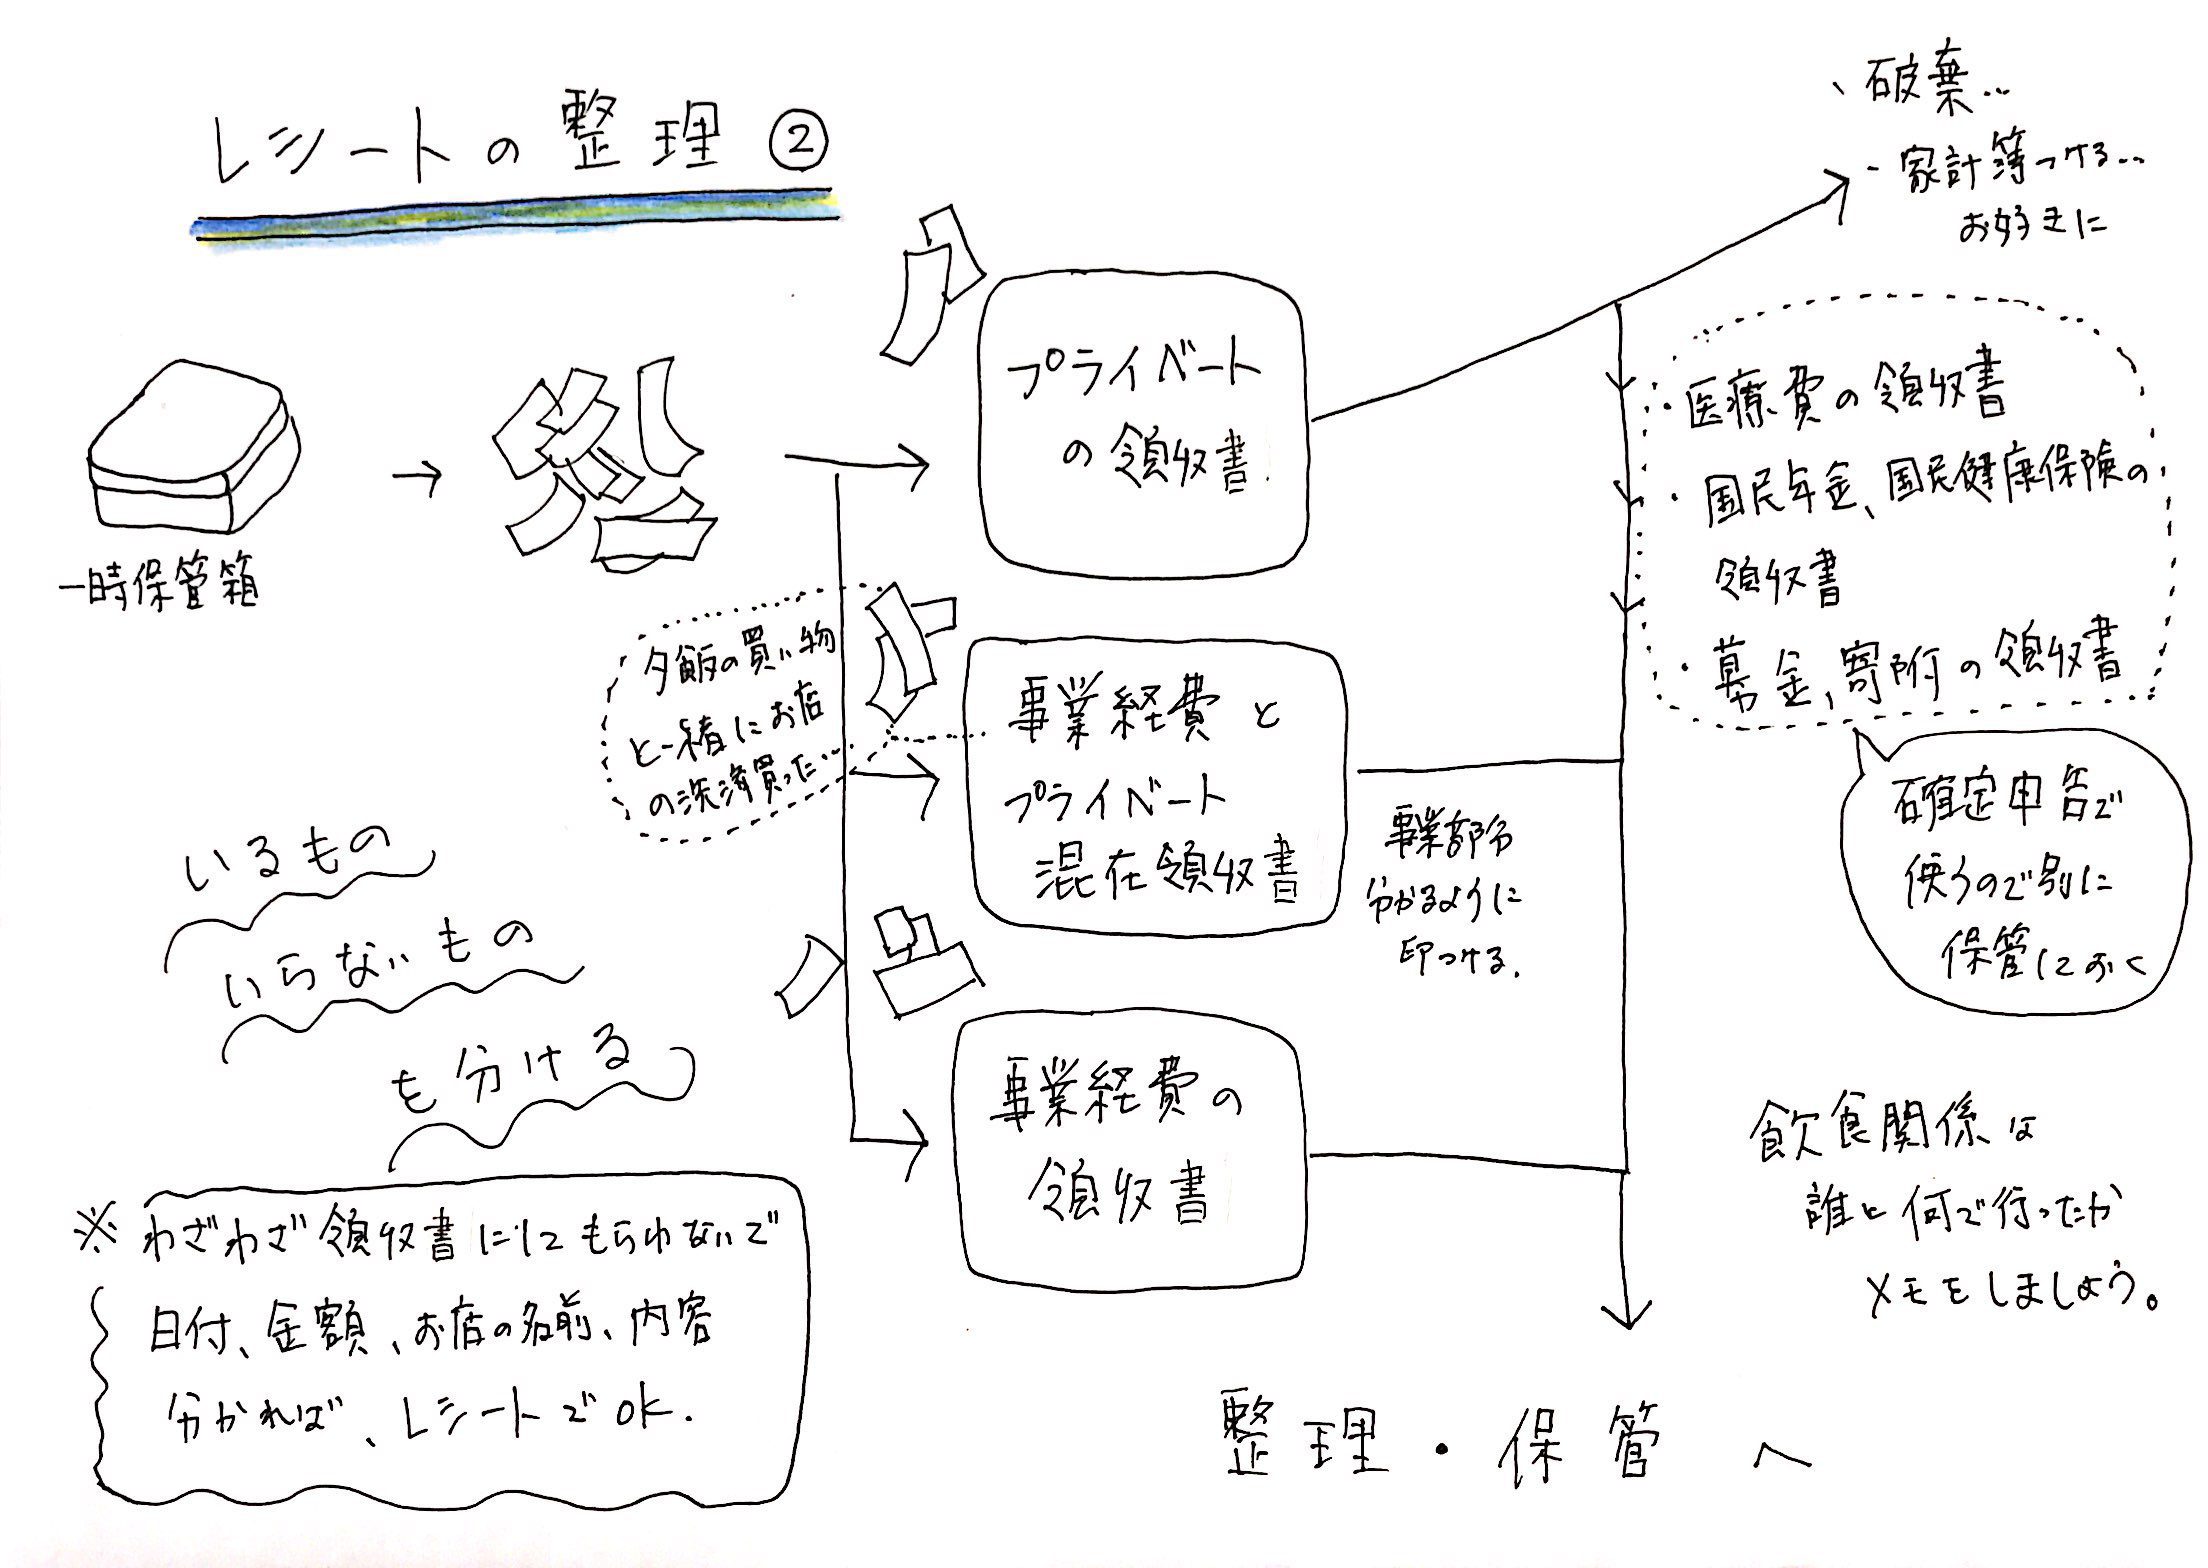 レシートの整理②
一時保管箱
いるもの
いらないもの
を分ける
※わざわざ領収書にしてもらわないで
日付、金額、お店の名前、内容
分かれば、レシートでOK.
プライベート
の領収書
夕飯の買い物
と一緒にお店
の洗済買った…
事業経費と
プライベート
混在領収書
事業部分
分かるように
印つける.
事業経費の
領収書
・破棄…
・家計簿つける…
お好きに
・医療費の領収書
・国民年金、国民健康保険の
領収書
・募金、寄附の領収書
確定申告で
使うので別に
保管しておく
飲食関係は
誰と何で行ったか
メモをしましょう。
整理・保管へ